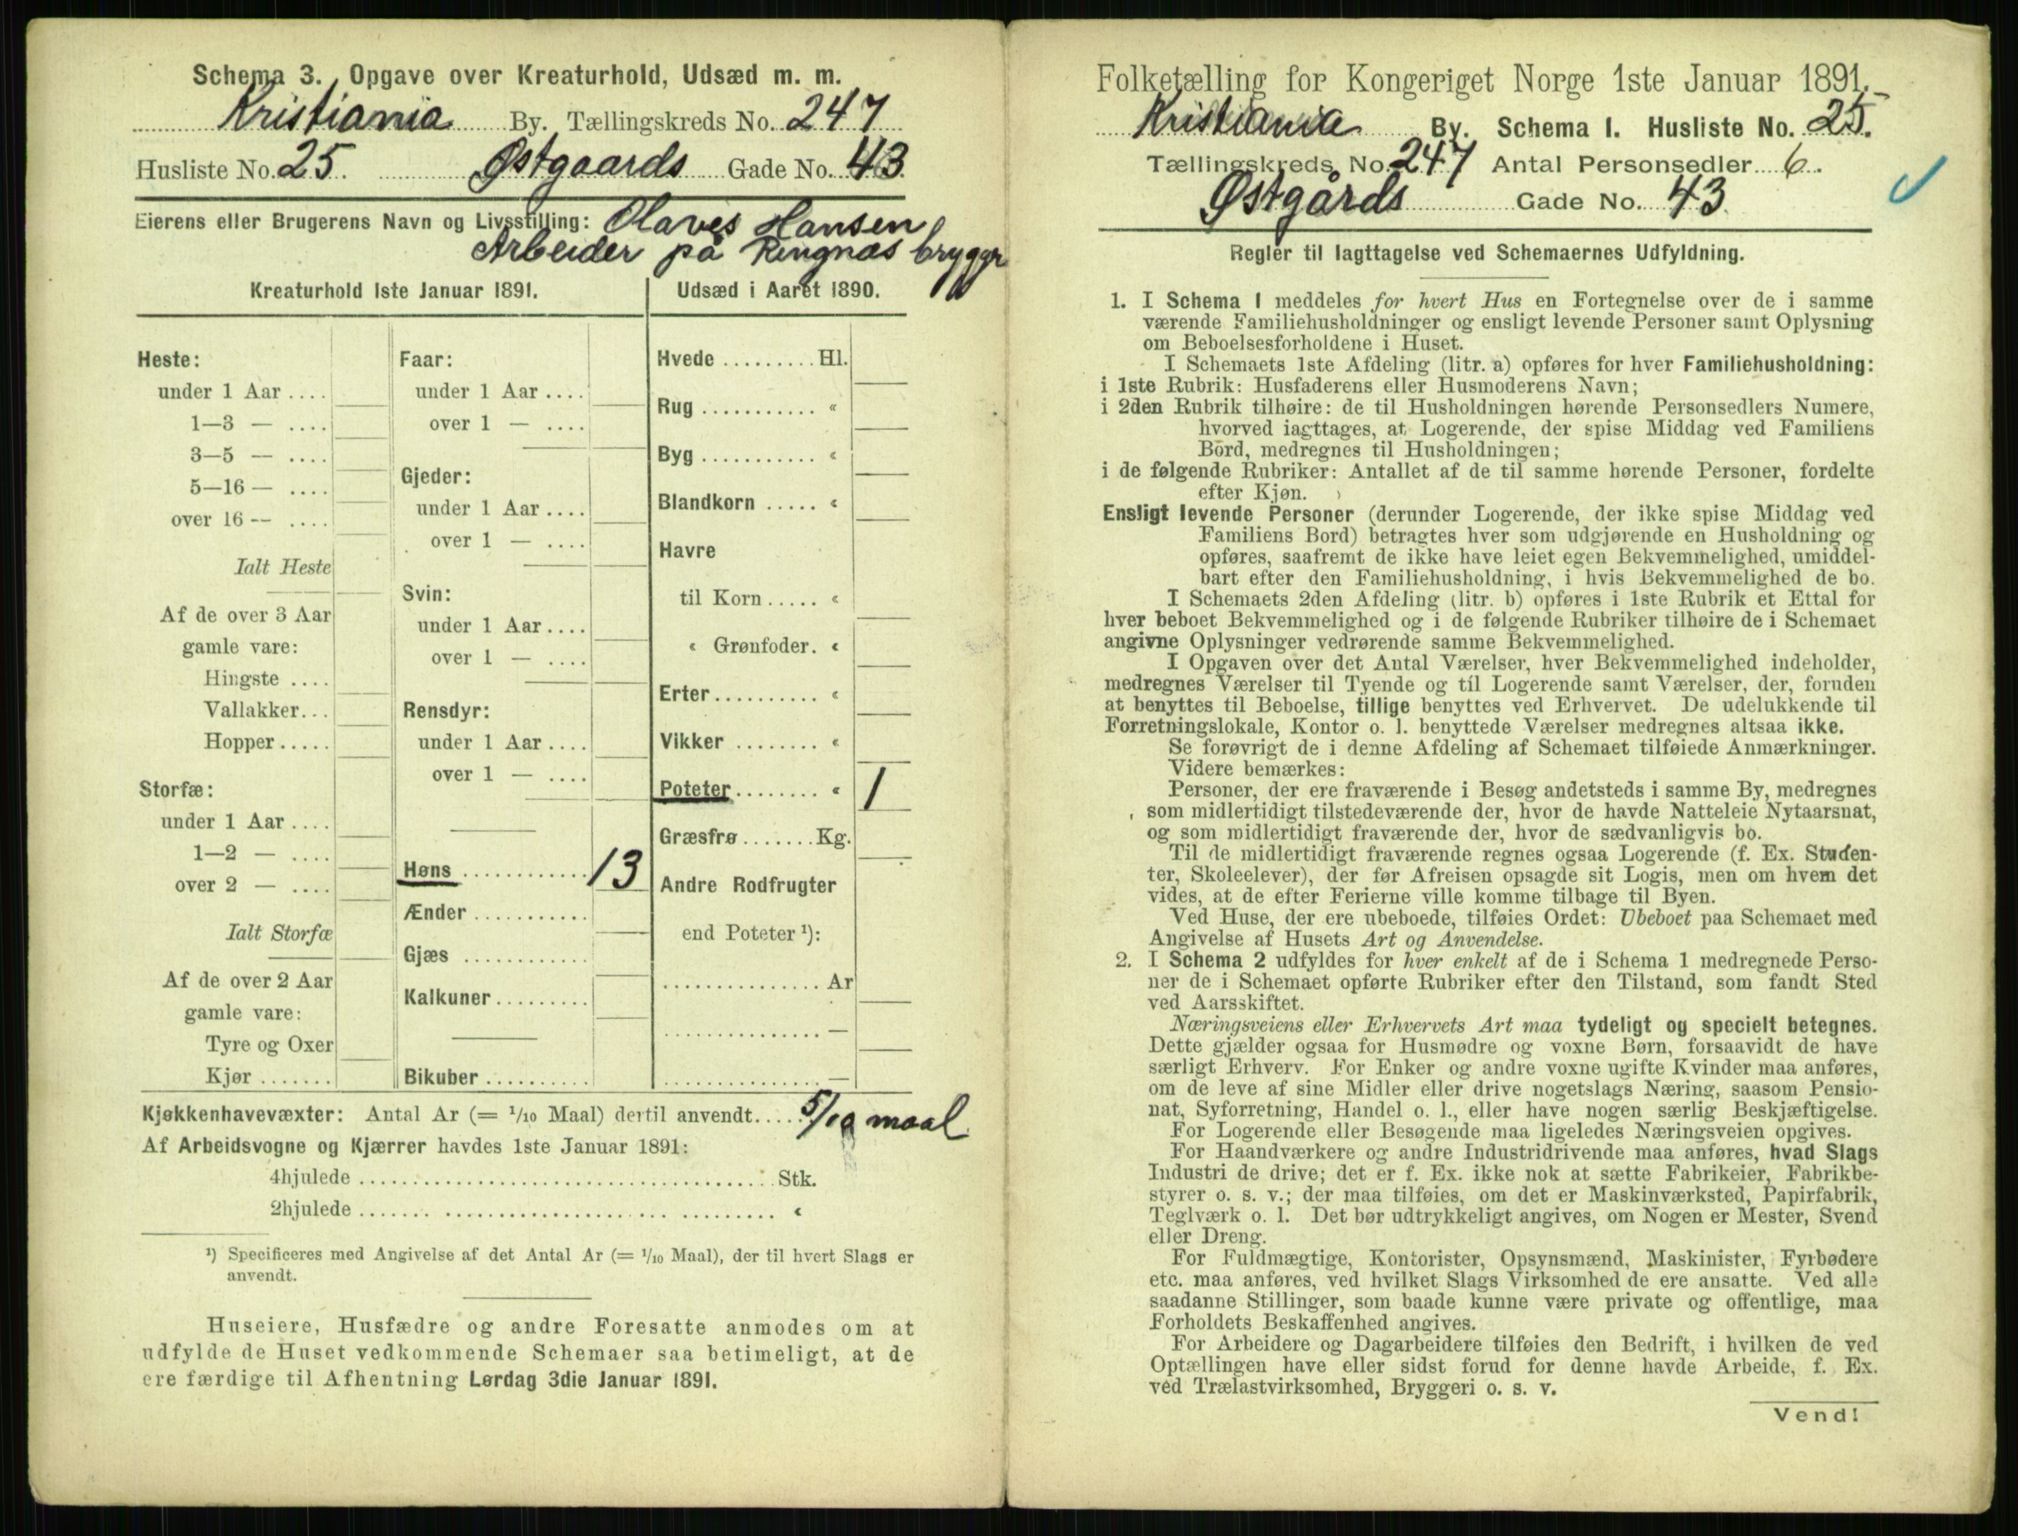 Schema 3. Opgave over Kreaturhold, Udsæd m. m.
Kristiania By. Tællingskreds No. 247
Husliste No. 25. Østgaards Gade No. 43
Eierens eller Brugerens Navn og Livsstilling: Olaves Hansen
Arbeider på Ringnæs bryggr
Kreaturhold 1ste Januar 1891.
Heste:
under 1 Aar ....
1—3 — ....
3—5 — ....
5—16 — ....
over 16 -- ....
Ialt Heste
Af de over 3 Aar
gamle vare:
Hingste ....
Vallakker...
Hopper.....
Storfæ:
under 1 Aar ....
1—2 — ....
over 2 — ....
Ialt Storfæ
Af de over 2 Aar
gamle vare:
Tyre og Oxer
Kjør.......
Faar:
under 1 Aar ....
over 1 — ....
Gjeder:
under 1 Aar ....
over 1 — ....
Svin:
under 1 Aar ....
over 1 — ....
Rensdyr:
under 1 Aar ....
over 1 — ....
Høns ............ 13
Ænder ...........
Gjæs ............
Kalkuner.........
Bikuber ..........
Udsæd i Aaret 1890.
Hvede ......... Hl.
Rug ........... «
Byg ........... «
Blandkorn ..... «
Havre
til Korn..... «
« Grønfoder. «
Erter.......... «
Vikker ........ «
Poteter........ « 1
Græsfrø....... Kg.
Andre Rodfrugter
end Poteter ¹):
............... Ar
............... —
............... —
Kjøkkenhavevæxter: Antal Ar (= 1/10 Maal) dertil anvendt.... 5/10 maal
Af Arbeidsvogne og Kjærrer havdes 1ste Januar 1891:
4hjulede ........................................ Stk.
2hjulede ........................................ «
¹) Specificeres med Angivelse af det Antal Ar (= 1/10 Maal), der til hvert Slags er
anvendt.
Huseiere, Husfædre og andre Foresatte anmodes om at
udfylde de Huset vedkommende Schemaer saa betimeligt, at de
ere færdige til Afhentning Lørdag 3die Januar 1891.
Folketælling for Kongeriget Norge 1ste Januar 1891.
Kristiania By. Schema I. Husliste No. 25.
Tællingskreds No. 247 Antal Personsedler 6.
Østgårds Gade No. 43.
Regler til Iagttagelse ved Schemaernes Udfyldning.
1. I Schema I meddeles for hvert Hus en Fortegnelse over de i samme
værende Familiehusholdninger og ensligt levende Personer samt Oplysning
om Beboelsesforholdene i Huset.
I Schemaets 1ste Afdeling (litr. a) opføres for hver Familiehusholdning:
i 1ste Rubrik: Husfaderens eller Husmoderens Navn;
i 2den Rubrik tilhøire: de til Husholdningen hørende Personsedlers Numere,
hvorved iagttages, at Logerende, der spise Middag ved Familiens
Bord, medregnes til Husholdningen;
i de følgende Rubriker: Antallet af de til samme hørende Personer, fordelte
efter Kjøn.
Ensligt levende Personer (derunder Logerende, der ikke spise Middag ved
Familiens Bord) betragtes hver som udgjørende en Husholdning og
opføres, saafremt de ikke have leiet egen Bekvemmelighed, umiddel-
bart efter den Familiehusholdning, i hvis Bekvemmelighed de bo.
I Schemaets 2den Afdeling (litr. b) opføres i 1ste Rubrik et Ettal for
hver beboet Bekvemmelighed og i de følgende Rubriker tilhøire de i Schemaet
angivne Oplysninger vedrørende samme Bekvemmelighed.
I Opgaven over det Antal Værelser, hver Bekvemmelighed indeholder,
medregnes Værelser til Tyende og til Logerende samt Værelser, der, foruden
at benyttes til Beboelse, tillige benyttes ved Erhvervet. De udelukkende til
Forretningslokale, Kontor o. l. benyttede Værelser medregnes altsaa ikke.
Se forøvrigt de i denne Afdeling af Schemaet tilføiede Anmærkninger.
Videre bemærkes:
Personer, der ere fraværende i Besøg andetsteds i samme By, medregnes
som midlertidigt tilstedeværende der, hvor de havde Natteleie Nytaarsnat,
og som midlertidigt fraværende der, hvor de sædvanligvis bo.
Til de midlertidigt fraværende regnes ogsaa Logerende (f. Ex. Studen-
ter, Skoleelever), der før Afreisen opsagde sit Logis, men om hvem det
vides, at de efter Ferierne ville komme tilbage til Byen.
Ved Huse, der ere ubeboede, tilføies Ordet: Ubeboet paa Schemaet med
Angivelse af Husets Art og Anvendelse.
2. I Schema 2 udfyldes for hver enkelt af de i Schema 1 medregnede Perso-
ner de i Schemaet opførte Rubriker efter den Tilstand, som fandt Sted
ved Aarsskiftet.
Næringsveiens eller Erhvervets Art maa tydeligt og specielt betegnes.
Dette gjælder ogsaa for Husmødre og voxne Børn, forsaavidt de have
særligt Erhverv. For Enker og andre voxne ugifte Kvinder maa anføres,
om de leve af sine Midler eller drive nogetslags Næring, saasom Pensio-
nat, Syforretning, Handel o. l., eller have nogen særlig Beskjæftigelse.
For Logerende eller Besøgende maa ligeledes Næringsveien opgives.
For Haandværkere og andre Industridrivende maa anføres, hvad Slags
Industri de drive; det er f. Ex. ikke nok at sætte Fabrikeier, Fabrikbe-
styrer o. s. v.; der maa tilføies, om det er Maskinværksted, Papirfabrik,
Teglværk o. l. Det bør udtrykkeligt angives, om Nogen er Mester, Svend
eller Dreng.
For Fuldmægtige, Kontorister, Opsynsmænd, Maskinister, Fyrbødere
etc. maa anføres, ved hvilket Slags Virksomhed de ere ansatte. Ved alle
saadanne Stillinger, som baade kunne være private og offentlige, maa
Forholdets Beskaffenhed angives.
For Arbeidere og Dagarbeidere tilføies den Bedrift, i hvilken de ved
Optællingen have eller sidst forud for denne havde Arbeide, f. Ex.
ved Trælastvirksomhed, Bryggeri o. s. v.
Vend!